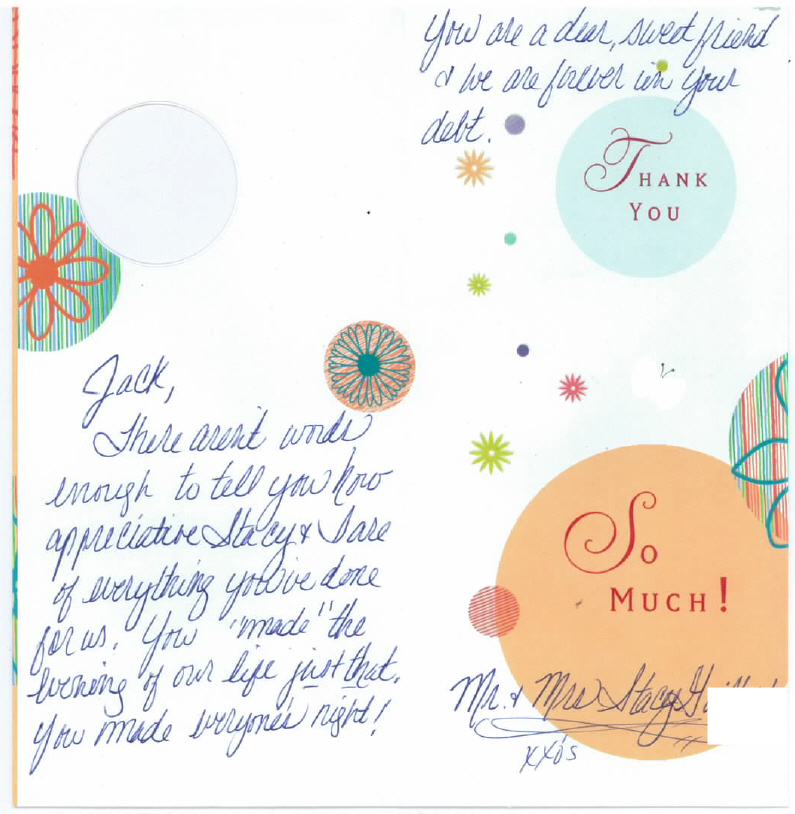 Jack,
There aren't words
enough to tell you how
appreciative Stacy & I are
of everything you've done
for us. You "made" the
evening of our life just that.
You made everyone's night!
You are a dear, sweet friend
& we are forever in your
debt.
THANK
YOU
SO
MUCH!
Mr. & Mrs Stacy
xxo's